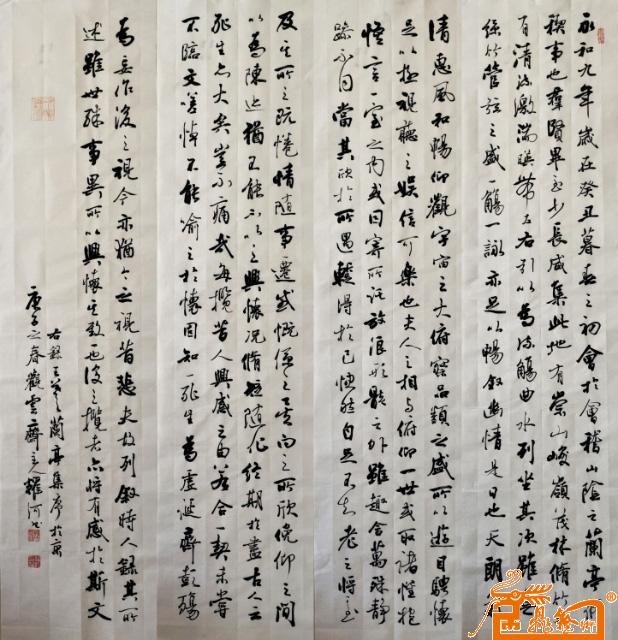 永和九年歲在癸丑暮春之初會於會稽山陰之蘭亭脩
禊事也羣賢畢至少長咸集此地有崇山峻嶺茂林脩竹
有清流激湍暎帶左右引以為流觴曲水列坐其次雖無
絲竹管弦之盛一觴一詠亦足以暢敘幽情是日也天朗
清惠風和暢仰觀宇宙之大俯察品類之盛所以遊目騁懷
足以極視聽之娛信可樂也夫人之相與俯仰一世或取諸懷抱
悟言一室之內或因寄所託放浪形骸之外雖趣舍萬殊靜
躁不同當其欣於所遇輒得於己快然自足不知老之將至
及其所之既惓情隨事遷感慨係之矣向之所欣俛仰之間
以為陳迹猶不能不以之興懷況脩短隨化終期於盡古人云
死生亦大矣豈不痛哉每攬昔人興感之由若合一契未嘗
不臨文嗟悼不能喻之於懷固知一死生為虛誕齊彭殤
為妄作後之視今亦猶今之視昔悲夫故列敘時人錄其所
述雖世殊事異所以興懷其致一也後之攬者亦將有感於斯文
右錄王羲之蘭亭集序於
庚子之春觀雲齋主人耀河書